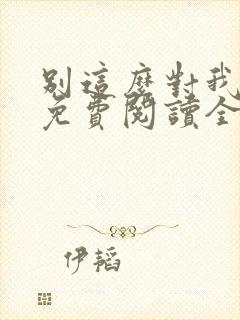 別這麽對我
免費閱讀全
伊韜